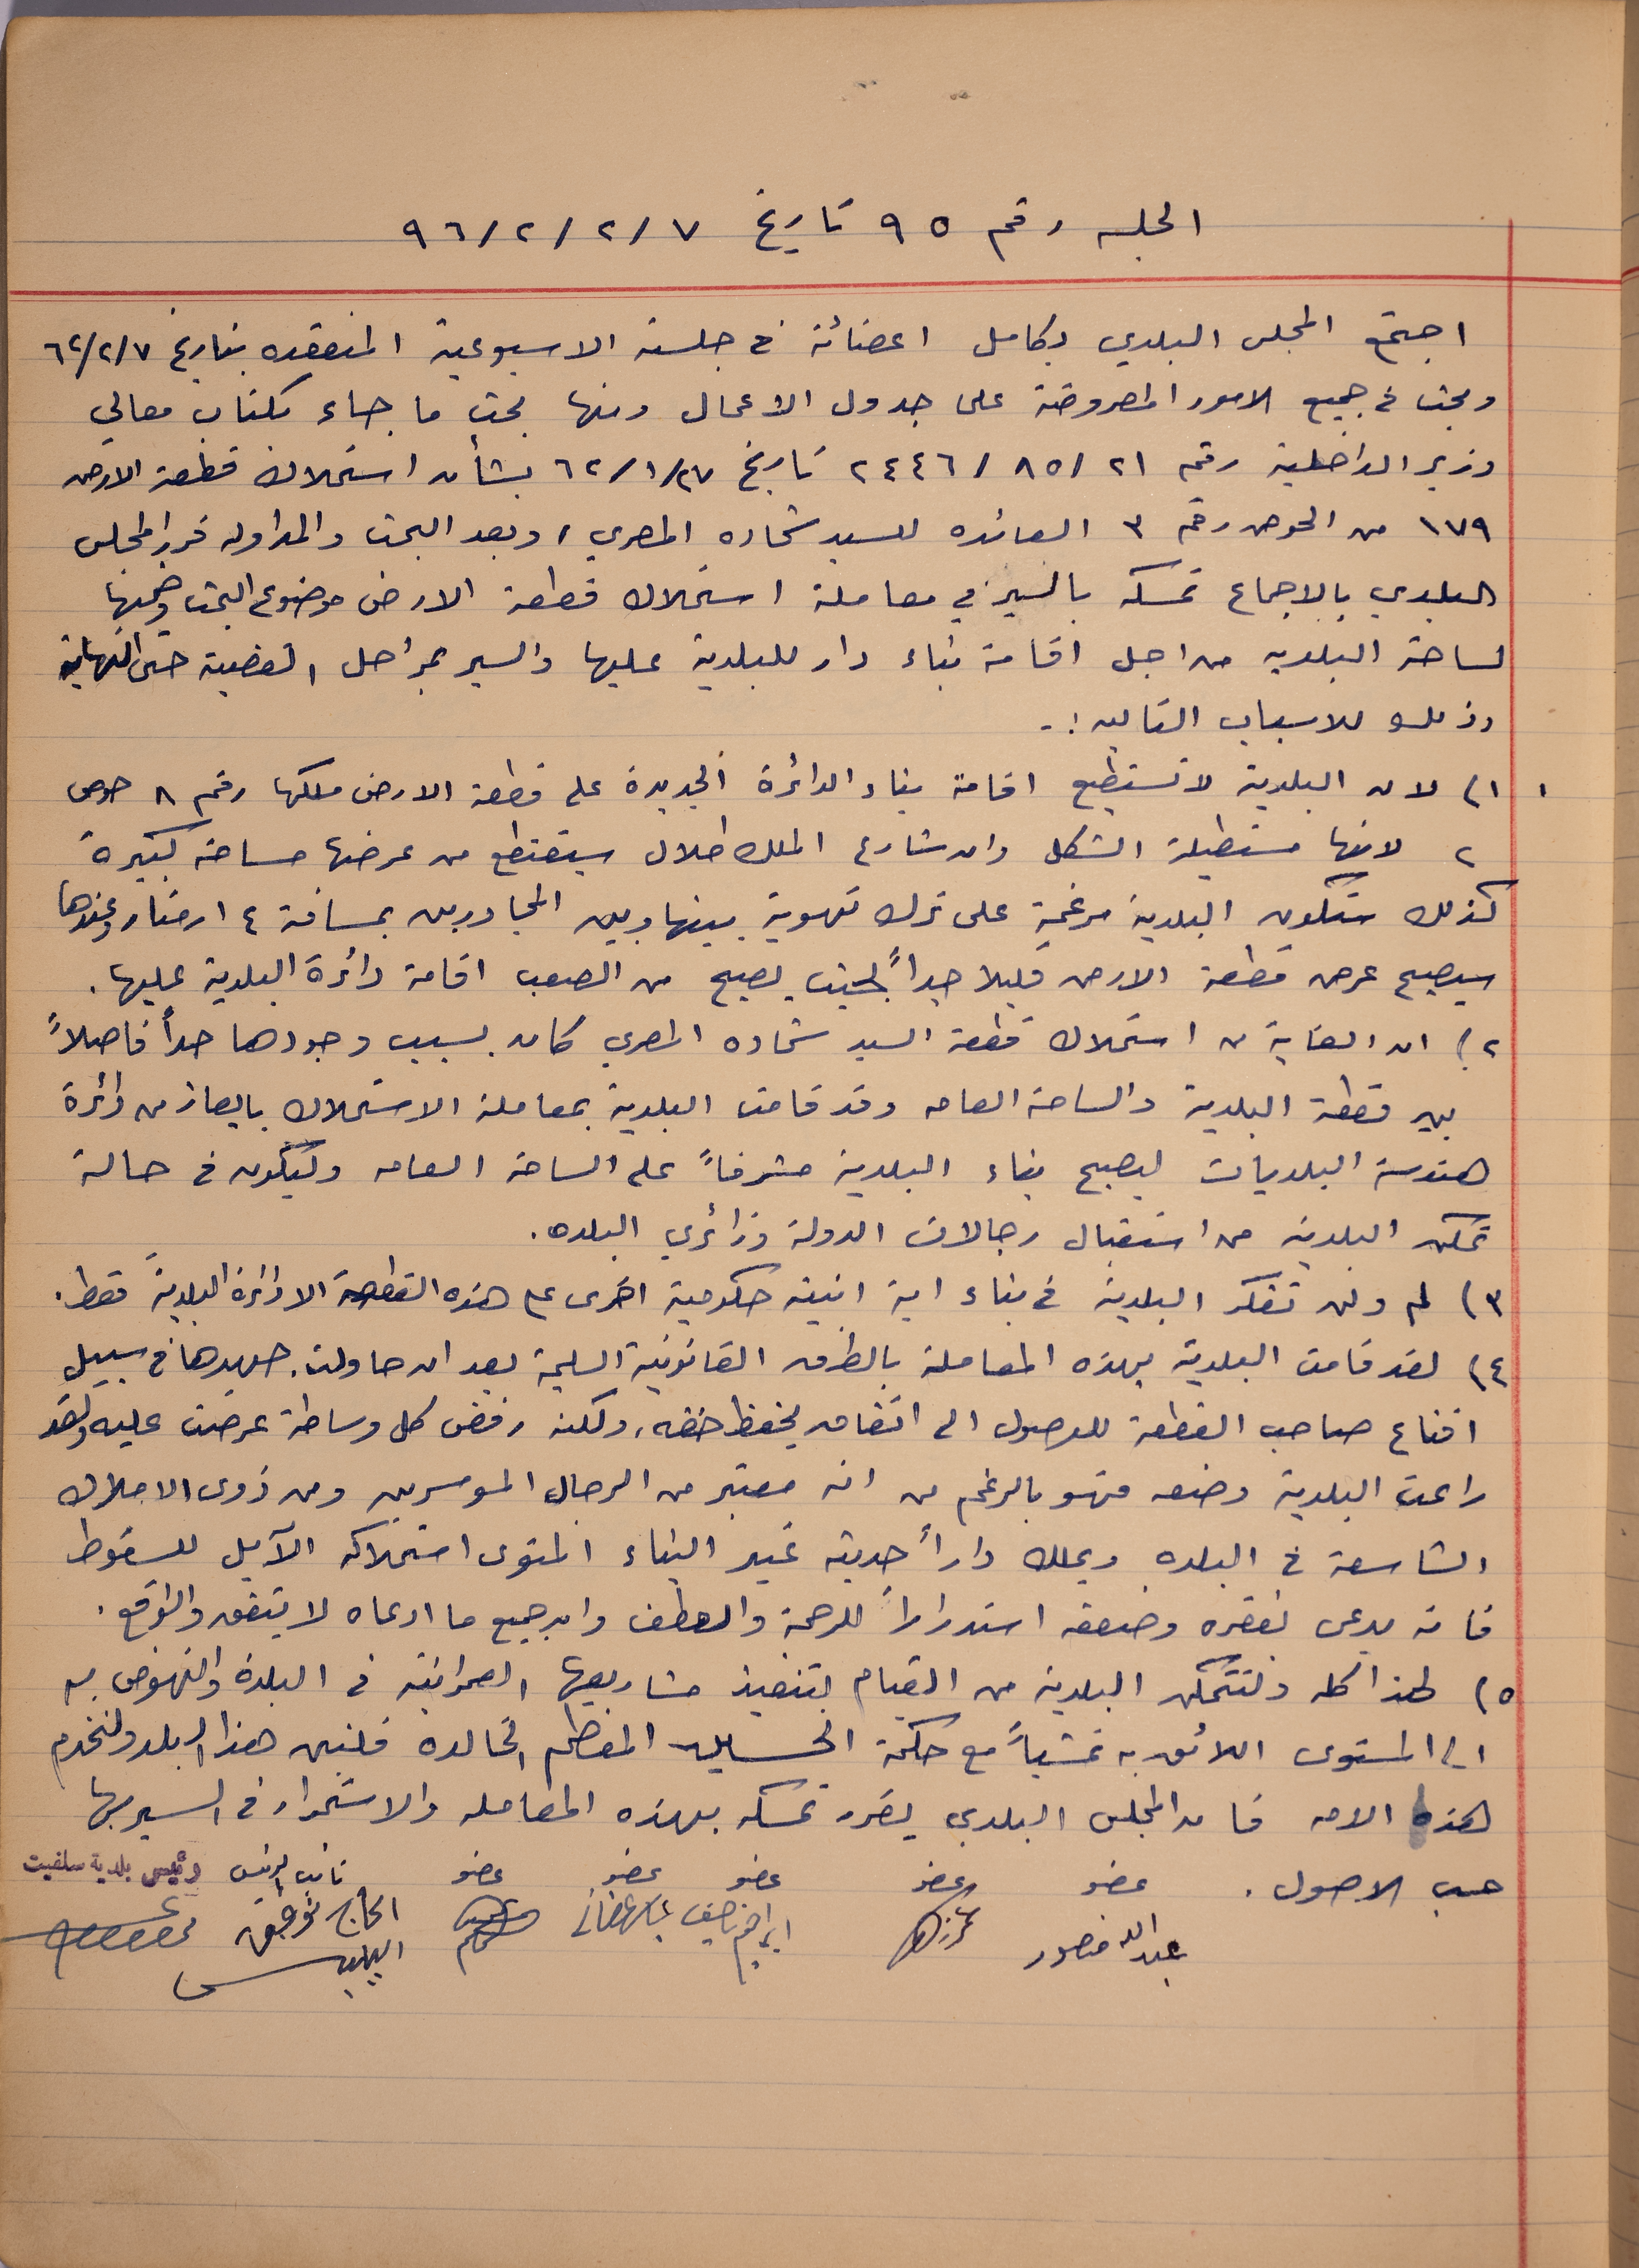 الجلسه رقم ٩٥ تاريخ ٧/٢/٢/٩٦
اجتمع المجلس البلدي بكامل اعضائه في جلسته الاسبوعية المنعقده بتاريخ ٦٢/٢/٧
وبحث في جميع الامور المعروضة على جدول الاعمال ومنها بحث ما جاء بكتاب معالي
وزير الداخلية رقم ٢١/٨٥/٢٤٤٦ تاريخ ٦٢/١/٢٧ بشأن استملاك قطعة الارض
١٧٩ من الحوض رقم ٣ العائده للسيد شحاده المصري، وبعد البحث والمداوله قرر المجلس
البلدي بالاجماع تمسكه بالسير في معاملة استملاك قطعة الارض موضوع البحث وضمها
لساحة البلديه من اجل اقامة بناء دار للبلدية عليها والسير بمراحل القضية حتى النهاية
وذلك للاسباب التاليه :-
١) لان البلدية لا تستطيع اقامة بناء الدائرة الجديدة على قطعة الارض ملكها رقم ٨ حوض
٢ لانها مستطيلة الشكل وان شارع الملك طلال سيقتطع من عرضها مساحة كبيرة
كذلك ستكون البلدية مرغمة على ترك تهوية بينها وبين المجاورين بمسافة ٤ امتار وعندها
سيصبح عرض قطعة الارض قليلا جداً بحيث يصبح من الصعب اقامة دائرة البلدية عليها.
٢) ان الغاية من استملاك قطعة السيد شحاده المصري كان بسبب وجودها حداً فاصلاً
بين قطعة البلدية والساحة العامه وقد قامت البلدية بمعاملة الاستملاك بايعاز من دائرة
هندسة البلديات ليصبح بناء البلدية مشرفاً على الساحة العامه وليكون في حالة
تمكن البلدية من استقبال رجالات الدولة وزائري البلده.
٣) لم ولن تفكر البلدية في بناء اية ابنية حكومية اخرى على هذه القطعة الا دائرة البلدية فقط.
٤) لقد قامت البلدية بهذه المعاملة بالطرق القانونية السليمة بعد ان حاولت جهدها في سبيل
اقناع صاحب القطعة للوصول الى اتفاق يحفظ حقه، ولكنه رفض كل وساطة عرضت عليه ولقد
راعت البلدية وضعه فهو بالرغم من انه معتبر من الرجال الموسرين ومن ذوي الاملاك
الشاسعة في البلده ويملك داراً حديثه غير البناء المنوى استملاكه الآيل للسقوط
فانه يدعى بفقره وضعفه استدراراً للرحمة والعطف وان جميع ما ادعاه لا يتفق والواقع.
٥) لهذا كله ولتتمكن البلدية من القيام بتنفيذ مشاريعها العمرانية في البلدة والنهوض به
الى المستوى اللائق به تمشياً مع حكمة الحسين المعظم الخالده فلنبن هذا البلد ولنخدم
هذه الامه فان المجلس البلدي يقرر تمسكه بهذه المعامله والاستمرار في السير بها
حسب الاصول. عضو عضو عضو عضو عضو نائب الرئيس رئيس بلدية سلفيت
عبدالله منصور ابراهيم الحاج توفيق